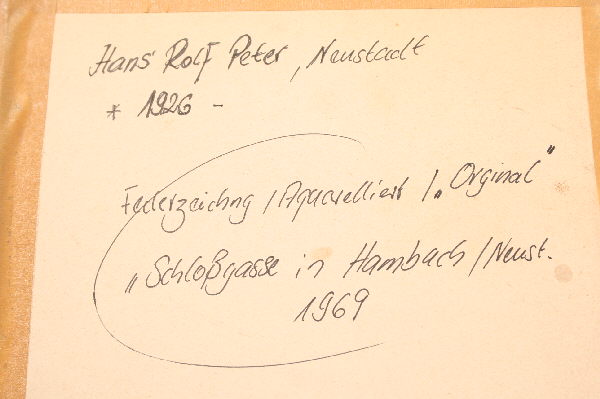 Hans Rolf Peter, Neustadt
* 1926 -
Federzeichng / Aquarelliert / „Orginal"
„Schloßgasse in Hambach / Neust.
1969